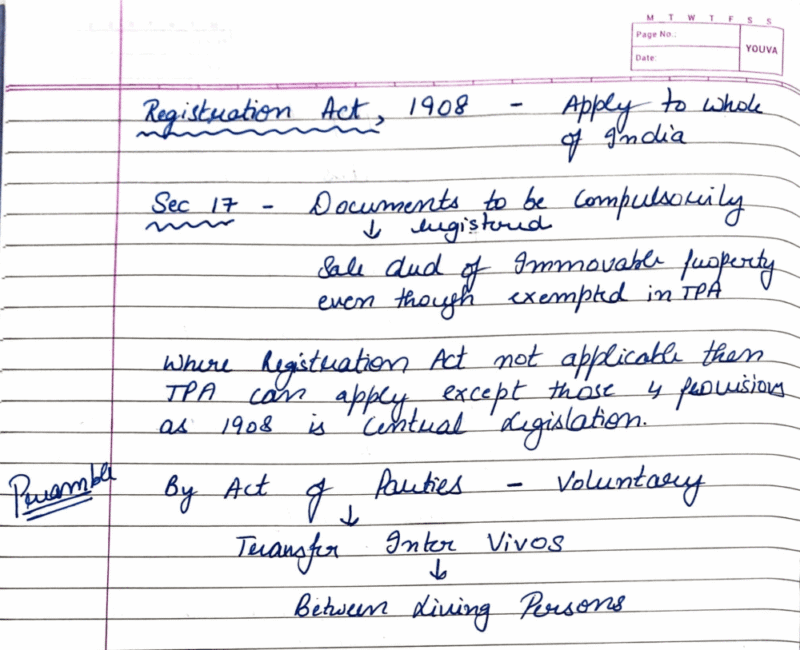 M T W T F S S
Page No.:
YOUVA
Date:
Registration Act, 1908 - Apply to whole
of India
Sec 17 - Documents to be Compulsorily
↓ registered
Sale deed of Immovable property
even though exempted in TPA
Where Registration Act not applicable then
TPA can apply except those 4 provisions
as 1908 is Central Legislation.
Preamble
By Act of Parties - Voluntary
↓
Transfer Inter Vivos
↓
Between Living Persons